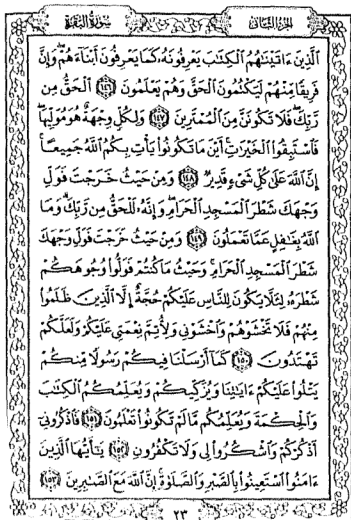 سُورَةُ البَقَرَةِ الجُزءُ الثَّانِي
الَّذِينَ ءَاتَيْنَٰهُمُ الْكِتَٰبَ يَعْرِفُونَهُۥ كَمَا يَعْرِفُونَ أَبْنَآءَهُمْ ۖ وَإِنَّ
فَرِيقًا مِّنْهُمْ لَيَكْتُمُونَ الْحَقَّ وَهُمْ يَعْلَمُونَ ١٤٦ الْحَقُّ مِن
رَّبِّكَ ۖ فَلَا تَكُونَنَّ مِنَ الْمُمْتَرِينَ ١٤٧ وَلِكُلٍّ وِجْهَةٌ هُوَ مُوَلِّيهَا ۖ
فَاسْتَبِقُوا الْخَيْرَٰتِ ۚ أَيْنَ مَا تَكُونُوا يَأْتِ بِكُمُ اللَّهُ جَمِيعًا ۚ
إِنَّ اللَّهَ عَلَىٰ كُلِّ شَىْءٍ قَدِيرٌ ١٤٨ وَمِنْ حَيْثُ خَرَجْتَ فَوَلِّ
وَجْهَكَ شَطْرَ الْمَسْجِدِ الْحَرَامِ ۖ وَإِنَّهُۥ لَلْحَقُّ مِن رَّبِّكَ ۗ وَمَا
اللَّهُ بِغَٰفِلٍ عَمَّا تَعْمَلُونَ ١٤٩ وَمِنْ حَيْثُ خَرَجْتَ فَوَلِّ وَجْهَكَ
شَطْرَ الْمَسْجِدِ الْحَرَامِ ۚ وَحَيْثُ مَا كُنتُمْ فَوَلُّوا وُجُوهَكُمْ
شَطْرَهُۥ لِئَلَّا يَكُونَ لِلنَّاسِ عَلَيْكُمْ حُجَّةٌ إِلَّا الَّذِينَ ظَلَمُوا
مِنْهُمْ فَلَا تَخْشَوْهُمْ وَاخْشَوْنِى وَلِأُتِمَّ نِعْمَتِى عَلَيْكُمْ وَلَعَلَّكُمْ
تَهْتَدُونَ ١٥٠ كَمَآ أَرْسَلْنَا فِيكُمْ رَسُولًا مِّنكُمْ
يَتْلُوا عَلَيْكُمْ ءَايَٰتِنَا وَيُزَكِّيكُمْ وَيُعَلِّمُكُمُ الْكِتَٰبَ
وَالْحِكْمَةَ وَيُعَلِّمُكُم مَّا لَمْ تَكُونُوا تَعْلَمُونَ ١٥١ فَاذْكُرُونِىٓ
أَذْكُرْكُمْ وَاشْكُرُوا لِى وَلَا تَكْفُرُونِ ١٥٢ يَٰٓأَيُّهَا الَّذِينَ
ءَامَنُوا اسْتَعِينُوا بِالصَّبْرِ وَالصَّلَوٰةِ ۚ إِنَّ اللَّهَ مَعَ الصَّٰبِرِينَ ١٥٣
٢٣